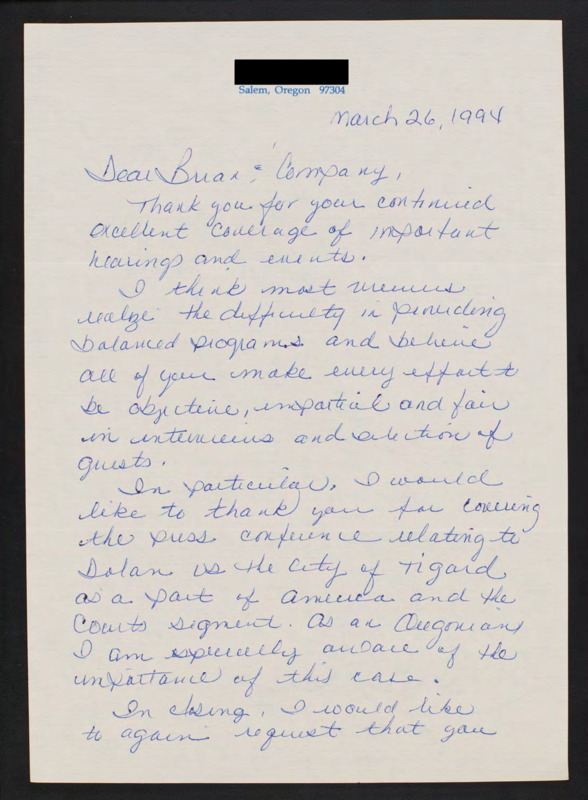 Salem, Oregon 97304
March 26, 1994
Dear Brian & Company,
Thank you for your continued
excellent coverage of important
hearings and events.
I think most viewers
realize the difficulty in providing
balanced programs and believe
all of you make every effort to
be objective, impartial and fair
in interviews and selection of
guests.
In particular, I would
like to thank you for covering
the press conference relating to
Dolan vs the City of Tigard
as a part of America and the
Courts segment. As an Oregonian,
I am especially aware of the
importance of this case.
In closing, I would like
to again request that you